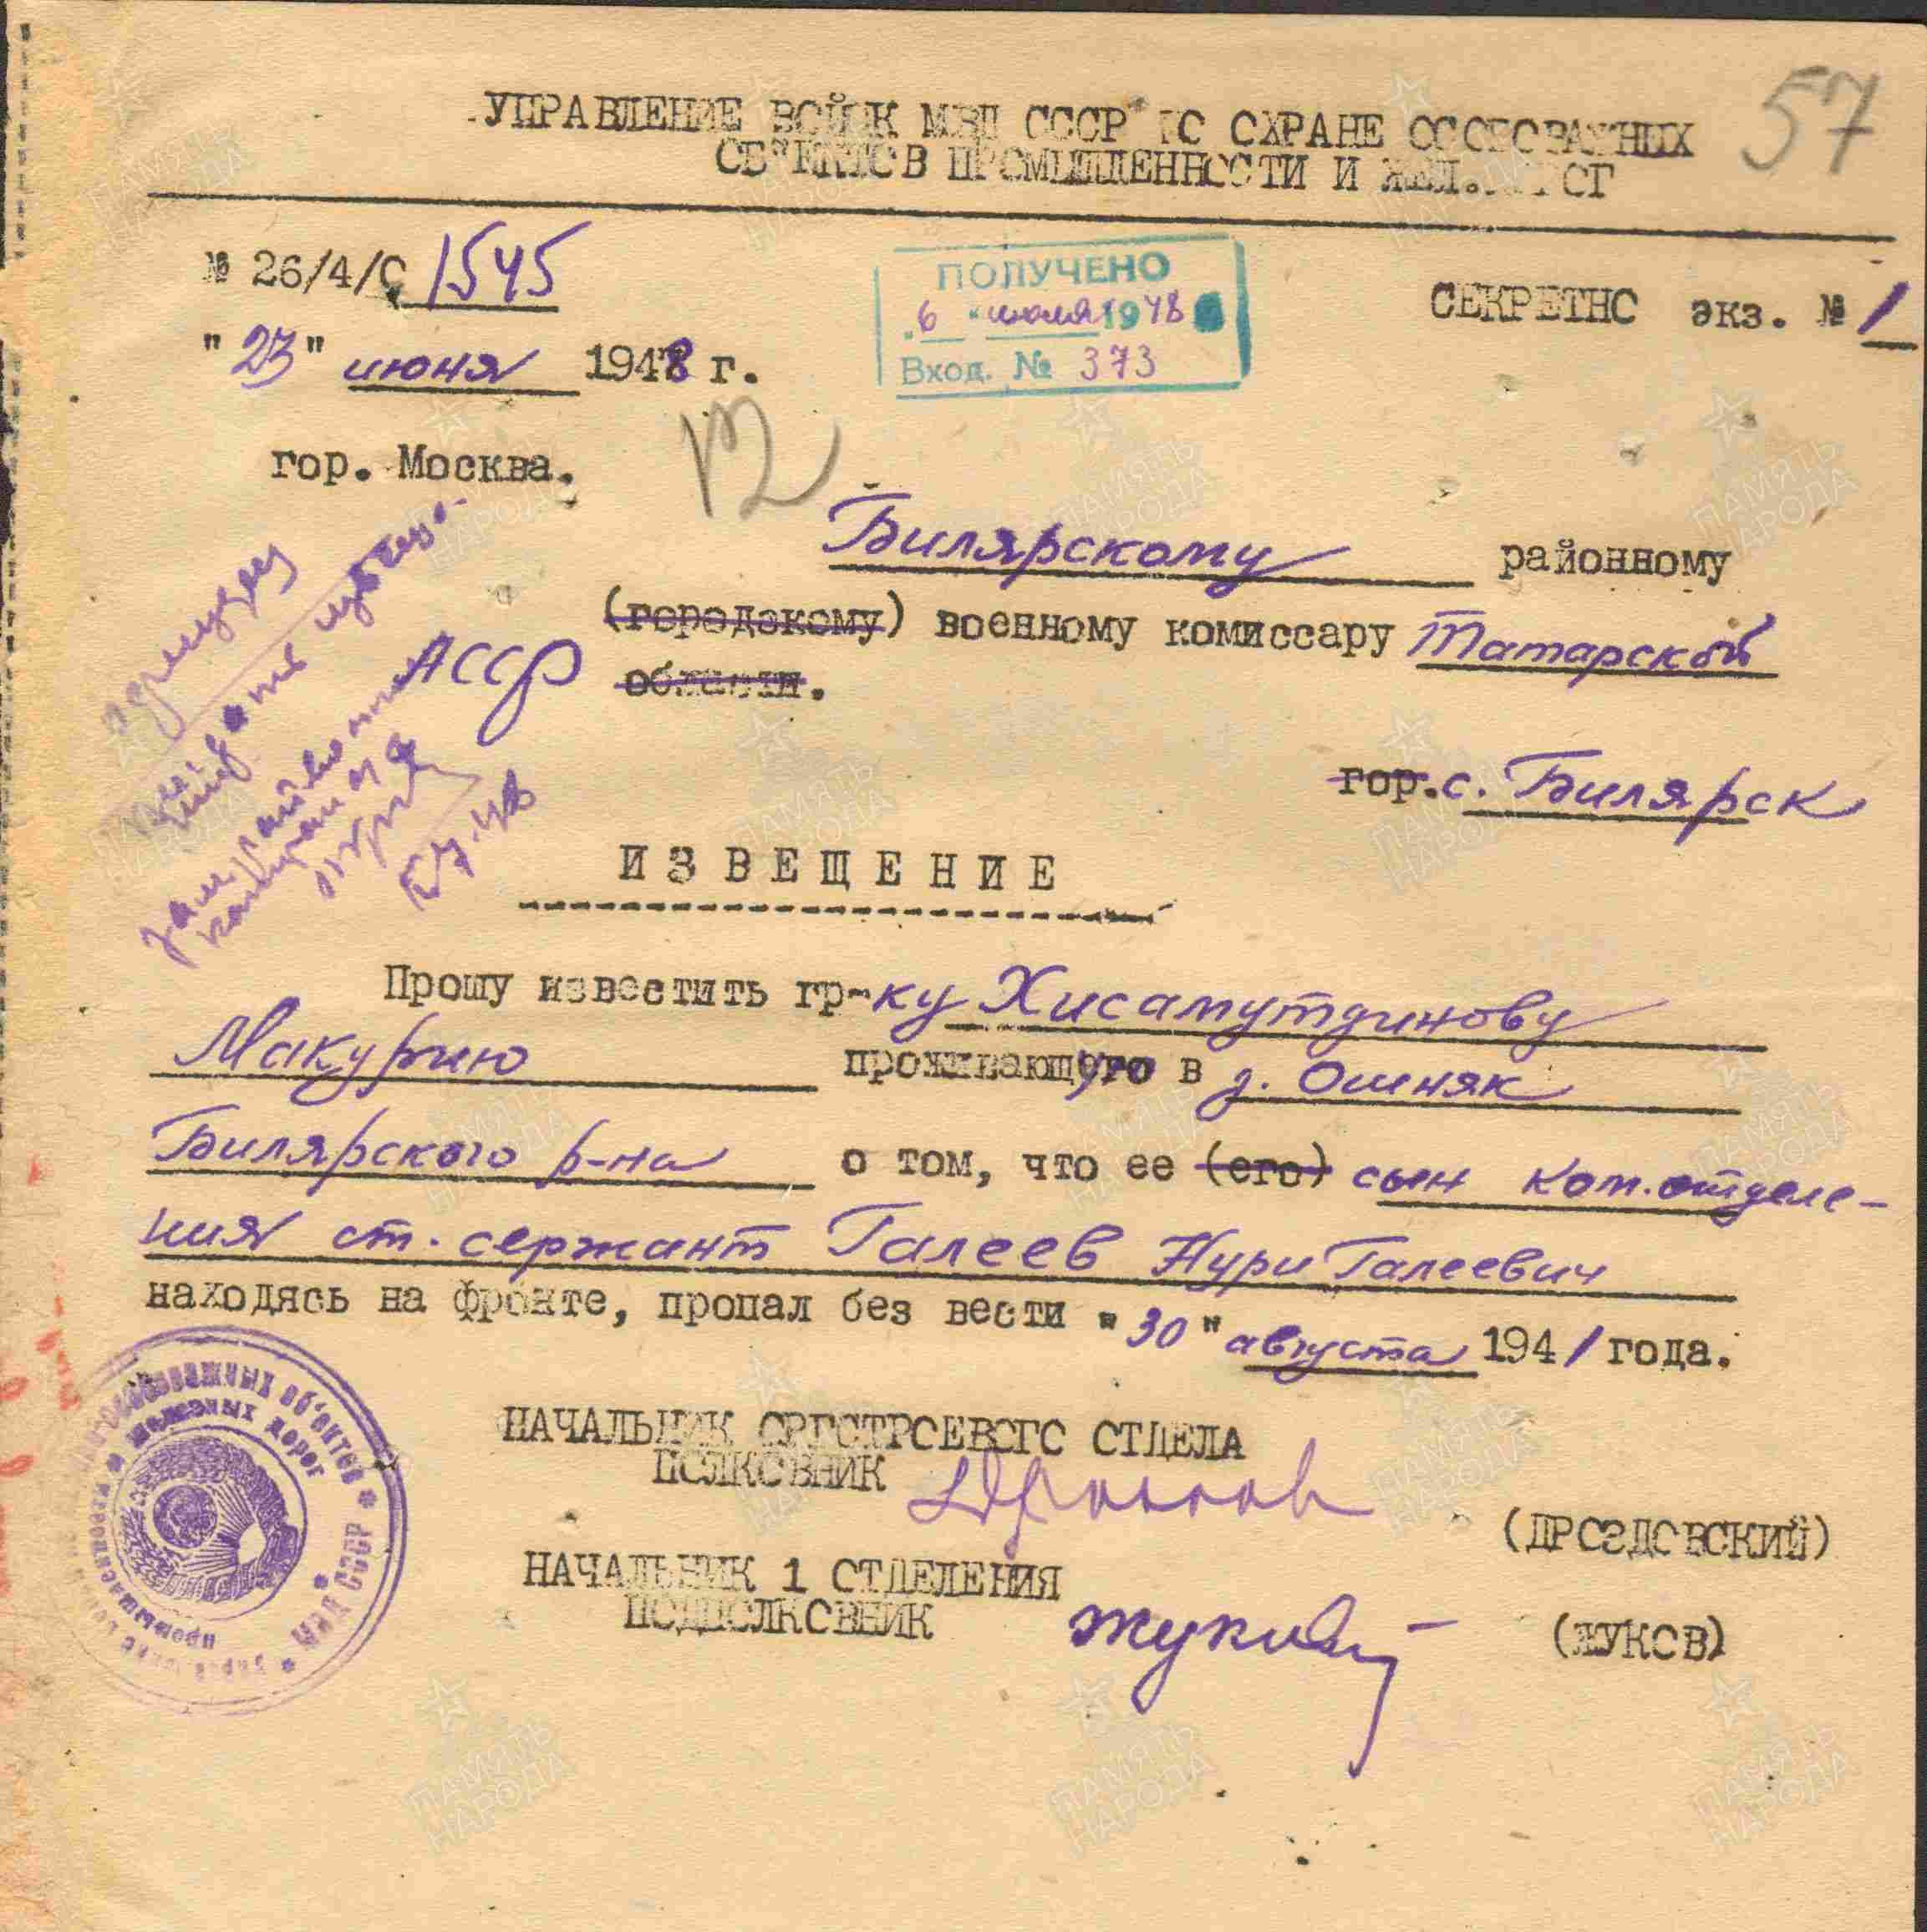 57
УПРАВЛЕНИЕ ВОЙСК МВД СССР ПО ОХРАНЕ ОСОБОВАЖНЫХ
ОБ"ЕКТОВ ПРОМЫШЛЕННОСТИ И ЖЕЛ.ДОРОГ
№ 26/4/С 1545
"23" июня 1948 г.
ПОЛУЧЕНО
"6" июля 1948
Вход. № 373
СЕКРЕТНО экз. № 1
гор. Москва.
Билярскому районному
(городскому) военному комиссару Татарской
АССР области.
гор. с. Билярск
ИЗВЕЩЕНИЕ
Прошу известить гр-ку Хисамутдинову
Макурию проживающую в д. Ошняк
Билярского р-на о том, что ее (его) сын ком. отделе-
ния ст. сержант Галеев Нури Галеевич
находясь на фронте, пропал без вести "30" августа 1941 года.
НАЧАЛЬНИК ОРГСТРОЕВОГО ОТДЕЛА
ПОЛКОВНИК
(ДРОЗДОВСКИЙ)
НАЧАЛЬНИК 1 ОТДЕЛЕНИЯ
ПОДПОЛКОВНИК
(ЖУКОВ)
особоважных об'ектов * МВД СССР *
промышленности * железных дорог
ПАМЯТЬ
НАРОДА